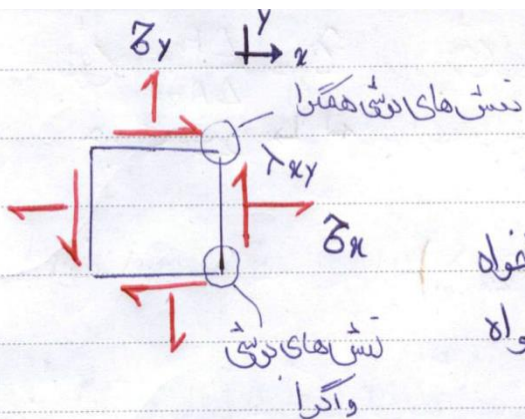 σy
y
x
تنش‌های برشی همگرا
τxy
σx
تنش‌های برشی
واگرا